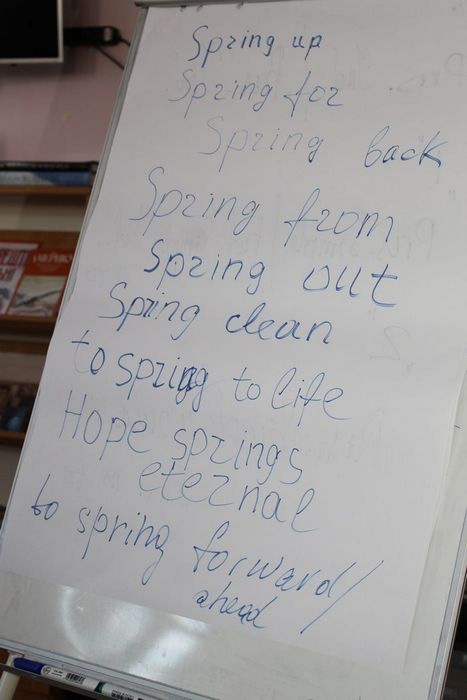 Spring up
Spring for
Spring back
Spring from
Spring out
Spring clean
to spring to life
Hope springs
eternal
to spring forward/
ahead